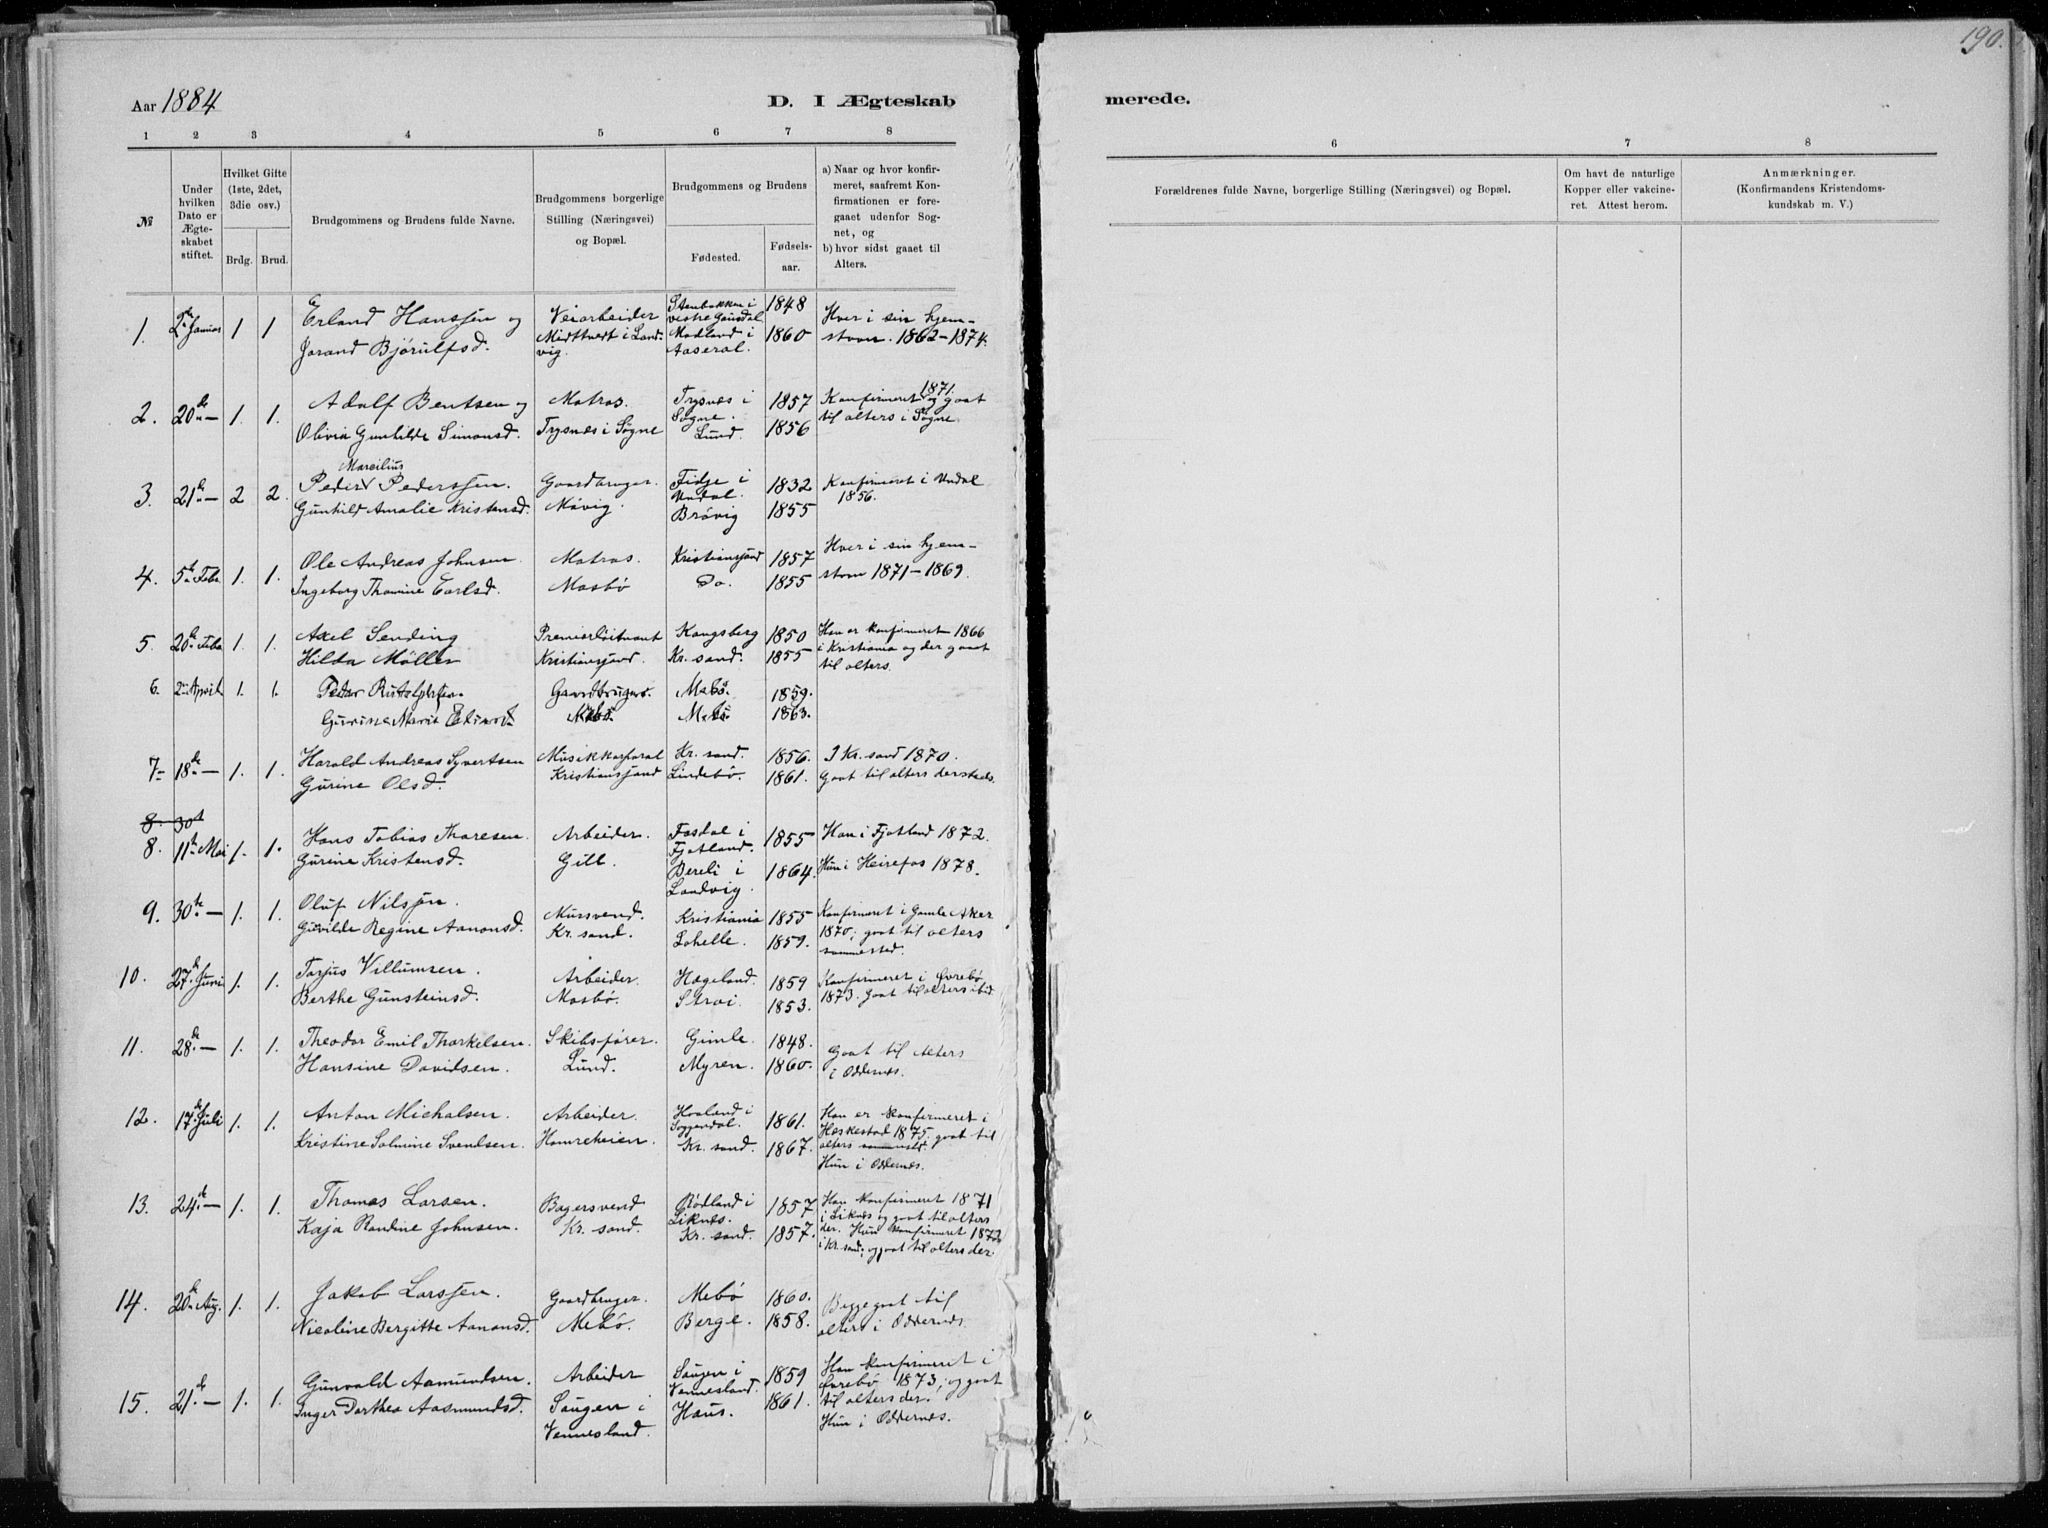 190.
Aar 1884
D. I Ægteskab
merede.
1 2 3 4 5 6 7 8
№
Under hvilken Dato er Ægteskabet stiftet.
Hvilket Gifte (1ste, 2det, 3die osv.)
Brdg. Brud.
Brudgommens og Brudens fulde Navne.
Brudgommens borgerlige Stilling (Næringsvei) og Bopæl.
Brudgommens og Brudens
Fødested.
Fødselsaar.
a) Naar og hvor konfirmeret, saafremt Konfirmationen er foregaaet udenfor Sognet, og
b) hvor sidst gaaet til Alters.
6 7 8
Forældrenes fulde Navne, borgerlige Stilling (Næringsvei) og Bopæl.
Om havt de naturlige Kopper eller vakcineret. Attest herom.
Anmærkninger.
(Konfirmandens Kristendomskundskab m. V.)
1. 1 1 Erland Hanssen og Veiarbeider Stenbakken i vestre Gausdal 1848 Hver i sin hjem-
Jorand Bjørulfsd. Midttvedt i Landvig. Modland i Aaseral. 1860 stavn. 1862-1874.
2. 20de — 1. 1. Adolf Bentsen og Matros. Trysnes i Søgne. 1857 Konfirmeret 1871 og gaat
Olivia Gunhilde Simonsd. Trysnes i Søgne Lund. 1856 til alters i Søgne
3. 21de — 2 2. Peder Marcilius Pederssen. Gaardbruger. Fidje i Undal. 1832 Konfirmeret i Undal
Gunhild Amalie Kristensd. Møvig. Brøvig 1855 1856.
4. 5te Febr 1. 1. Ole Andreas Johnsen Matros. Kristianssand 1857 Hver i sin hjem-
Ingeborg Thomine Carlsd. Mosbø Do. 1855 stavn 1871-1869.
5. 20de Febr 1. 1. Axel Sending Premierløitnant Kongsberg 1850 Han er konfirmeret 1866
Hilda Møller Kristianssand. Kr. sand. 1855 i Kristiania og der gaat til alters.
6. April 1. 1. Peder Gaardbruger. Mebø. 1859.
Gurine Marie Mebø. Mebø 1863.
7- 18de — 1. 1. Harald Andreas Syvertsen Musikkorporal Kr. sand. 1856. I Kr. sand 1870.
Gurine Olsd. Kristianssand Lindebø. 1861. Gaat til alters dersteds.
8. 30t
8. 11te Mai 1. 1. Hans Tobias Thoresen. Arbeider. Fosdal i Fjotland. 1855 Han i Fjotland 1872.
Gurine Kristensd. Gill. Bereli i Landvig. 1864. Hun i Heirefos 1878.
9. 30te — 1. 1. Oluf Nilssen. Mursvend. Kristiania 1855 Konfirmeret i Gamle Aker
Gunvilde Regine Aanonsd. Kr. sand. Lohelle. 1859. 1870; gaat til alters sammested.
10. 27de Juni 1. 1. Torjus Villumsen. Arbeider. Hægeland. 1859 Konfirmeret i Øvrebø
Berthe Gunsteinsd. Mosbø. Strai. 1853. 1873. Gaat til alters ibid
11. 28de — 1. 1. Theodor Emil Thorkelsen. Skibsfører. Gimle. 1848. Gaat til Alters
Hansine Davidsen. Lund. Myren. 1860. i Oddernes.
12. 17de Juli 1. 1. Anton Michalsen. Arbeider. Hooland i Soggendal. 1861. Han er konfirmeret i
Kristine Solmine Svendsen. Hamreheien. Kr. sand. 1867. Heskestad 1875; gaat til alters sammestd. Hun i Oddernes.
13. 24de — 1. 1. Thomas Larsen. Bagersvend Rødland i Liknes. 1857 Han konfirmeret 1871 i Liknes og gaat til alters
Kaja Randine Johnsen. Kr. sand. Kr. sand. 1857. der. Hun konfirmeret 1872 i Kr. sand; og gaat til alters der.
14. 20de Aug. 1. 1. Jakob Larssen. Gaardbruger. Mebø 1860. Begge gaat til
Nicoline Bergitte Aanonsd. Mebø. Berge. 1858. alters i Oddernes.
15. 21de — 1. 1. Gunvald Aamundsen. Arbeider Saugen i Vennesland. 1859 Han konfirmeret i Øvrebø 1873, og gaat
Inger Dorthea Aasmundsd. Saugen i Vennesland. Haus. 1861. til alters der. Hun i Oddernes.